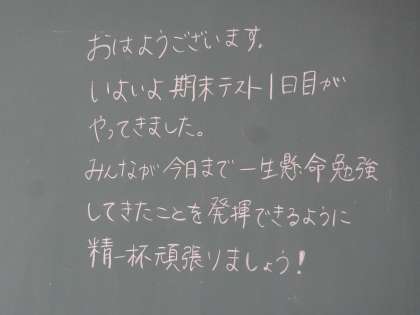 おはようございます。
いよいよ期末テスト1日目が
やってきました。
みんなが今日まで一生懸命勉強
してきたことを発揮できるように
精一杯頑張りましょう!